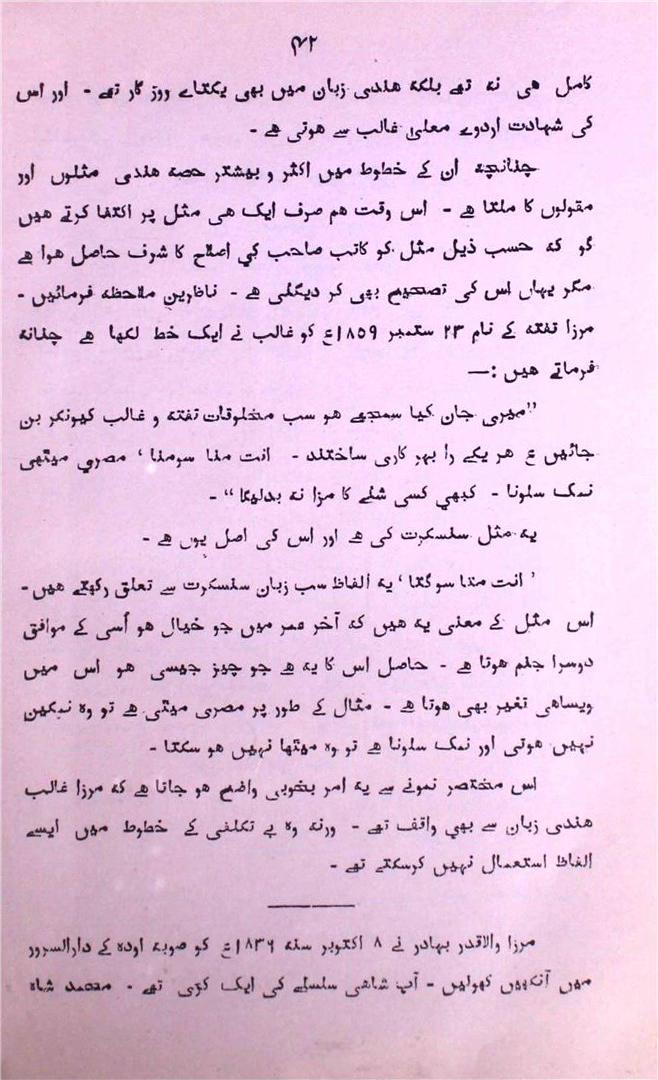 ۴۲
کامل ھی نہ تھے بلکہ ھندی زبان میں بھی یکتاے روز گار تھے - اور اس
کی شہادت اردوے معلیٰ غالب سے ھوتی ھے -
چنانچہ اُن کے خطوط میں اکثر و بیشتر حصہ ھندی مثلوں اور
مقولوں کا ملتا ھے - اس وقت ھم صرف ایک ھی مثل پر اکتفا کرتے ھیں
گو کہ حسب ذیل مثل کو کاتب صاحب کي اصلاح کا شرف حاصل ھوا ھے
مگر یہاں اس کی تصحیح بھی کر دیگئی ھے - ناظرین ملاحظہ فرمائیں -
مرزا تفتہ کے نام ۲۳ ستمبر ۱۸۵۹ع کو غالب نے ایک خط لکھا ھے چنانہ
فرماتے ھیں :—
”میری جان کیا سمجھے ھو سب مخلوقات تفتہ و غالب کیونکر بن
جائیں ع ھر یکے را بہر کاری ساختند - انت متا سومتا ‘ مصري میتھی
نمک سلونا - کبھي کسی شئے کا مزا نہ بدلیگا“ -
یہ مثل سنسکرت کی ھے اور اس کی اصل یوں ھے -
’ انت متا سو گتا ‘ یہ الفاظ سب زبان سنسکرت سے تعلق رکھتے ھیں -
اس مثل کے معنی یہ ھیں کہ آخر عمر میں جو خیال ھو اُسی کے موافق
دوسرا جنم ھوتا ھے - حاصل اس کا یہ ھے جو چیز جیسی ھو اس میں
ویساھی تغیر بھی ھوتا ھے - مثال کے طور پر مصری میٹی ھے تو وہ نمکین
نہیں ھوتی اور نمک سلونا ھے تو وہ میٹھا نہیں ھو سکتا -
اس مختصر نمونے سے یہ امر بخوبی واضح ھو جاتا ھے کہ مرزا غالب
ھندی زبان سے بھي واقف تھے - ورنہ وہ بے تکلفی کے خطوط میں ایسے
الفاظ استعمال نہیں کرسکتے تھے -
مرزا والاقدر بہادر نے ۸ اکتوبر سنہ ۱۸۳۶ع کو صوبہ اودہ کے دارالسرور
میں آنکھیں کھولیں - آپ شاھی سلسلے کی ایک کڑی تھے - محمد شاہ